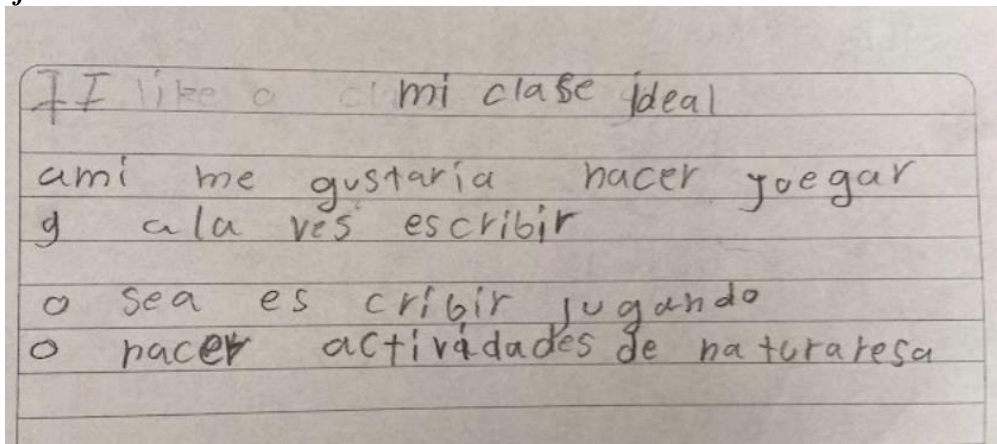 II like a mi clase ideal
ami me gustaría hacer joegar
y a la ves escribir
o sea es cribir jugando
o hacer actividades de naturaresa